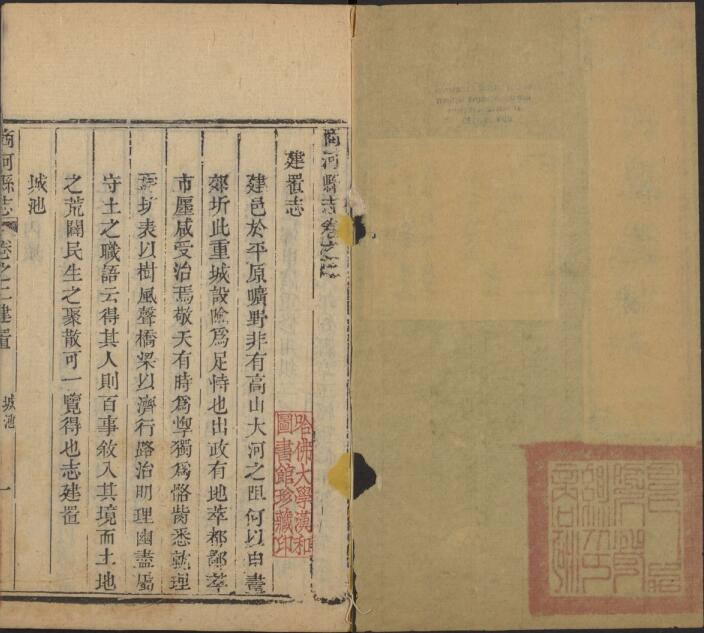 商河縣志卷之二
哈佛大學漢和
圖書館珍藏印
建置志
建邑於平原曠野非有高山大河之阻何以申畫
郊圻此重城設險爲足恃也出政有地萃都鄙萃
市廛咸受治焉敬天有時爲惸獨爲骼胔悉就理
坊表以樹風聲橋梁以濟行路治明理幽盡屬
守土之職語云得其人則百事敘入其境而土地
之荒闢民生之聚散可一覽得也志建置
城池
商河縣志
卷之二建置
城池
一